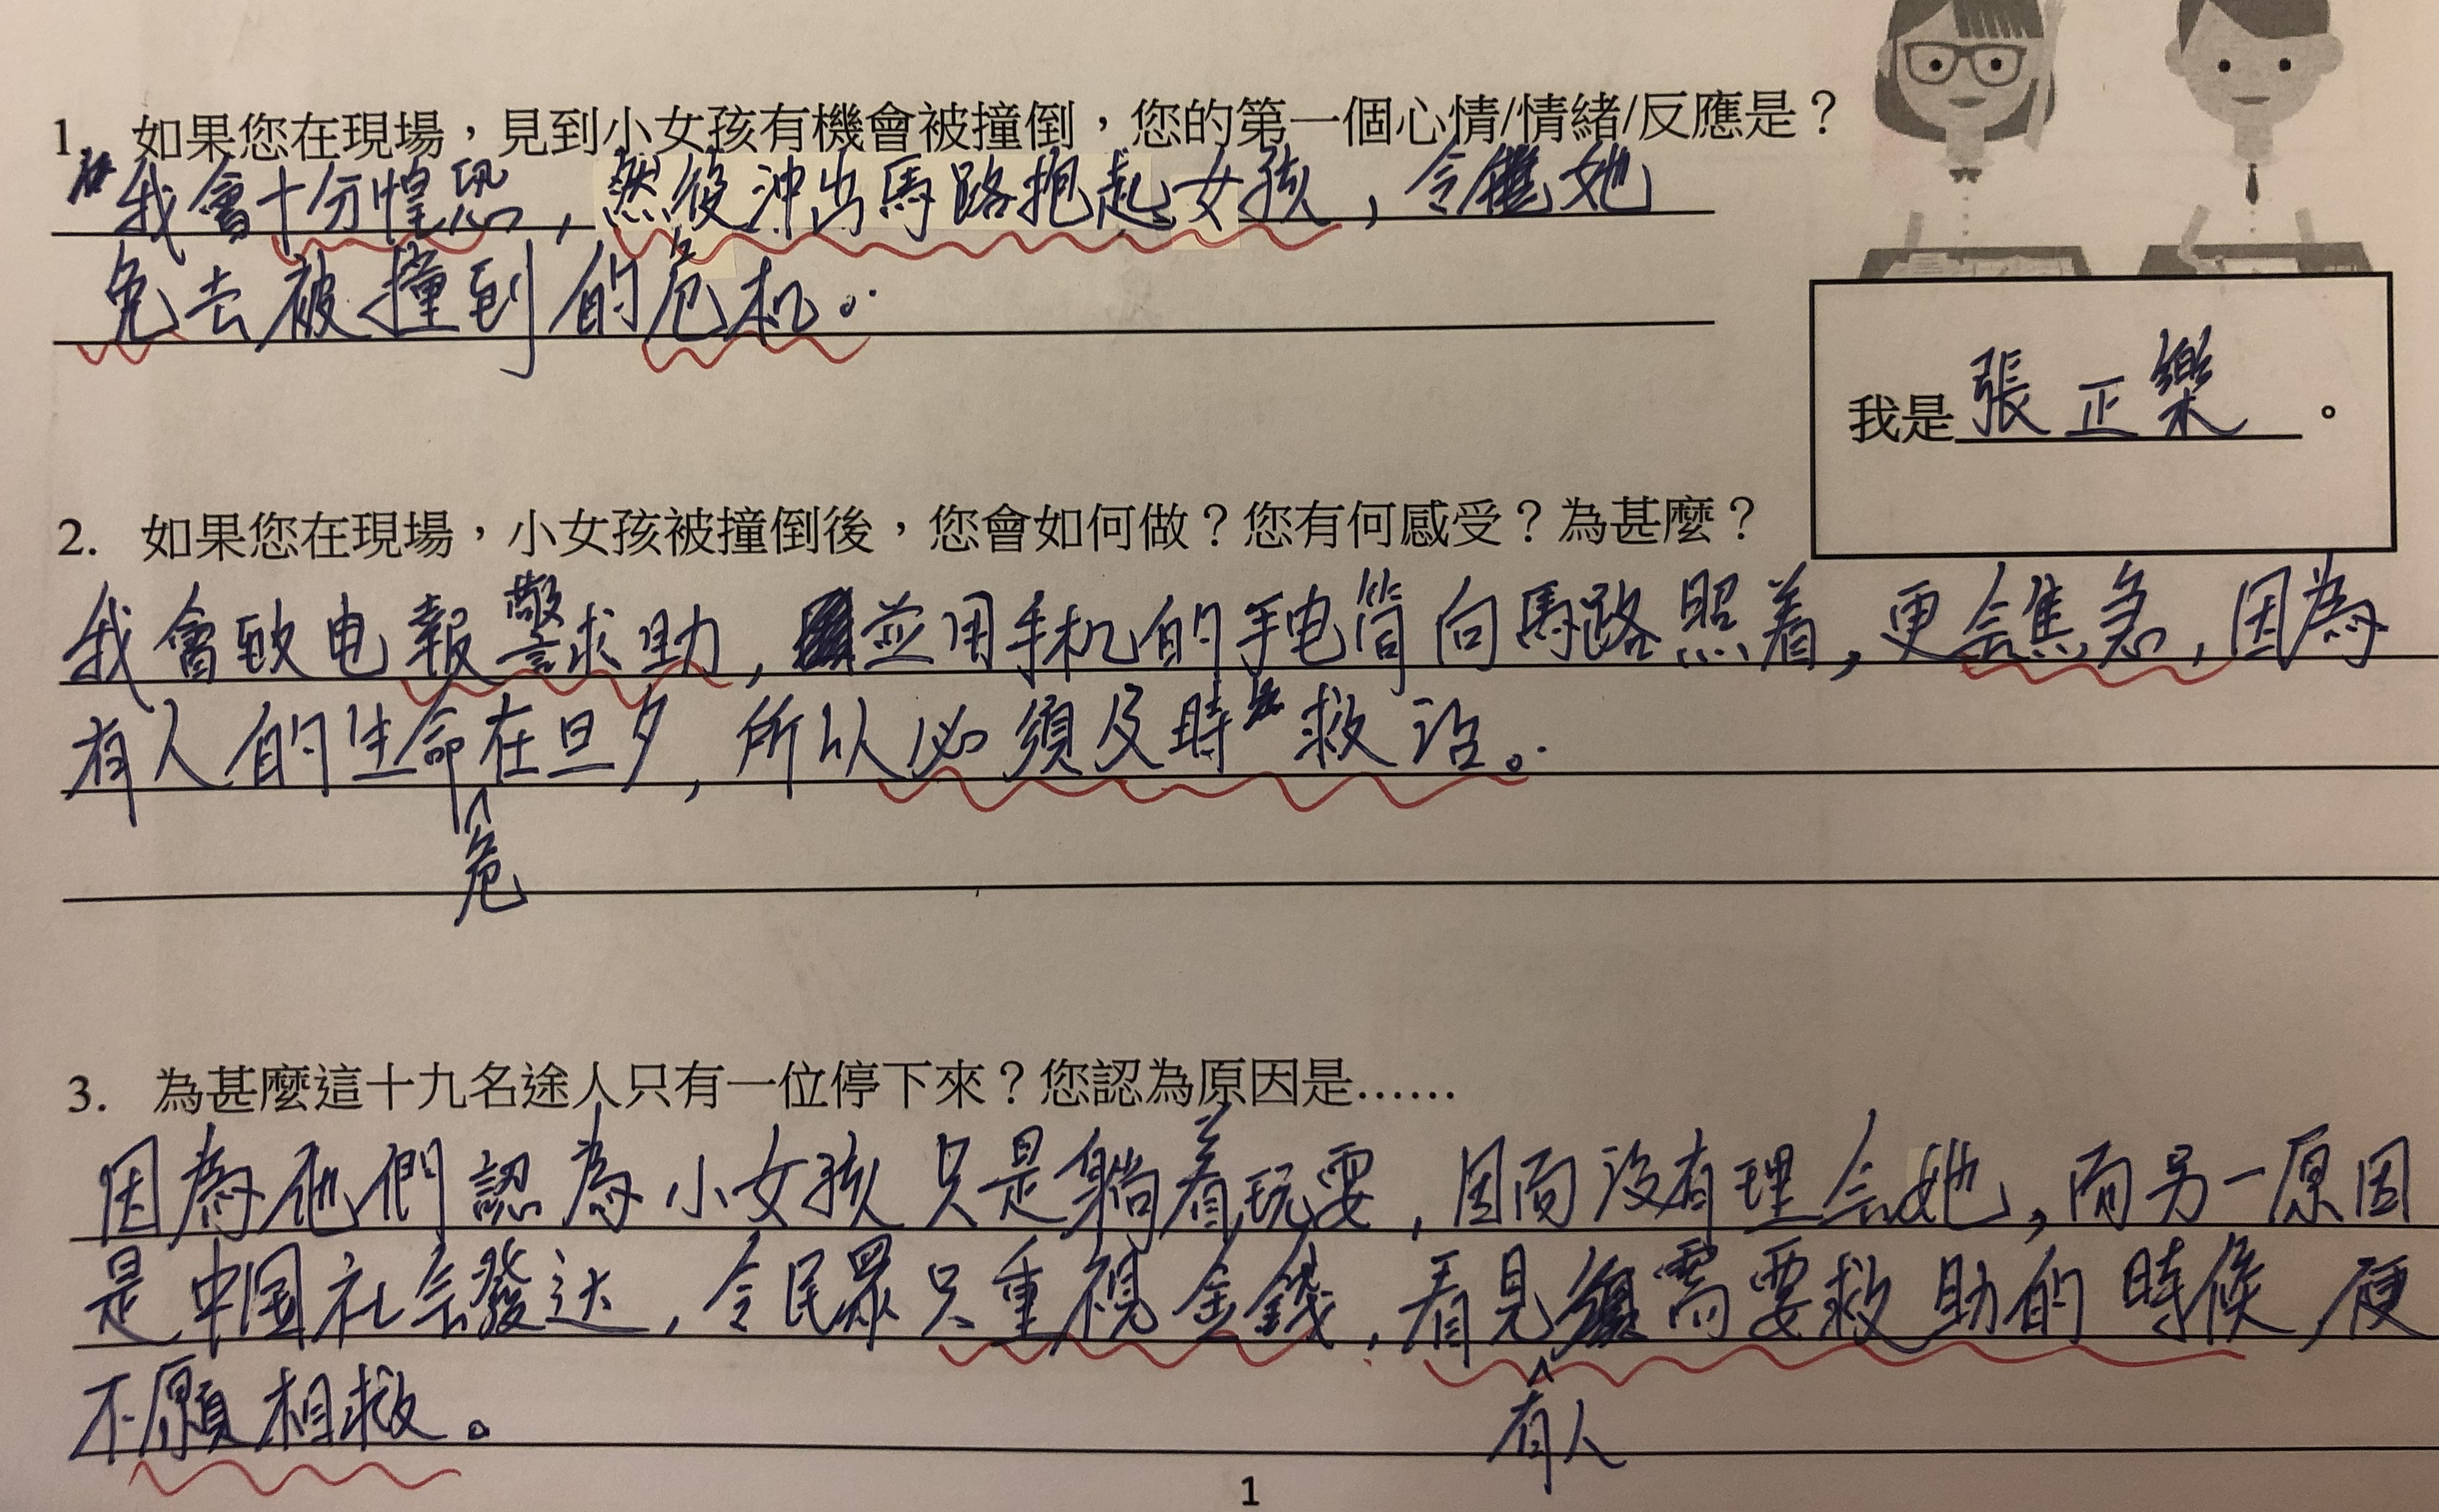 1. 如果您在現場，見到小女孩有機會被撞倒，您的第一個心情/情緒/反應是？
我會十分惶恐，然後沖出馬路抱起女孩，令她
免去被撞到的危机。
我是張正樂。
2. 如果您在現場，小女孩被撞倒後，您會如何做？您有何感受？為甚麼？
我會致电報警求助，並用手机的手电筒向馬路照着，更会焦急，因為
有人的生命危在旦夕，所以必須及時救治。
3. 為甚麼這十九名途人只有一位停下來？您認為原因是……
因為他們認為小女孩只是躺着玩耍，因而沒有理会她，而另一原因
是中国社会發达，令民眾只重視金錢，看見有人需要救助的時候，便
不願相救。
1